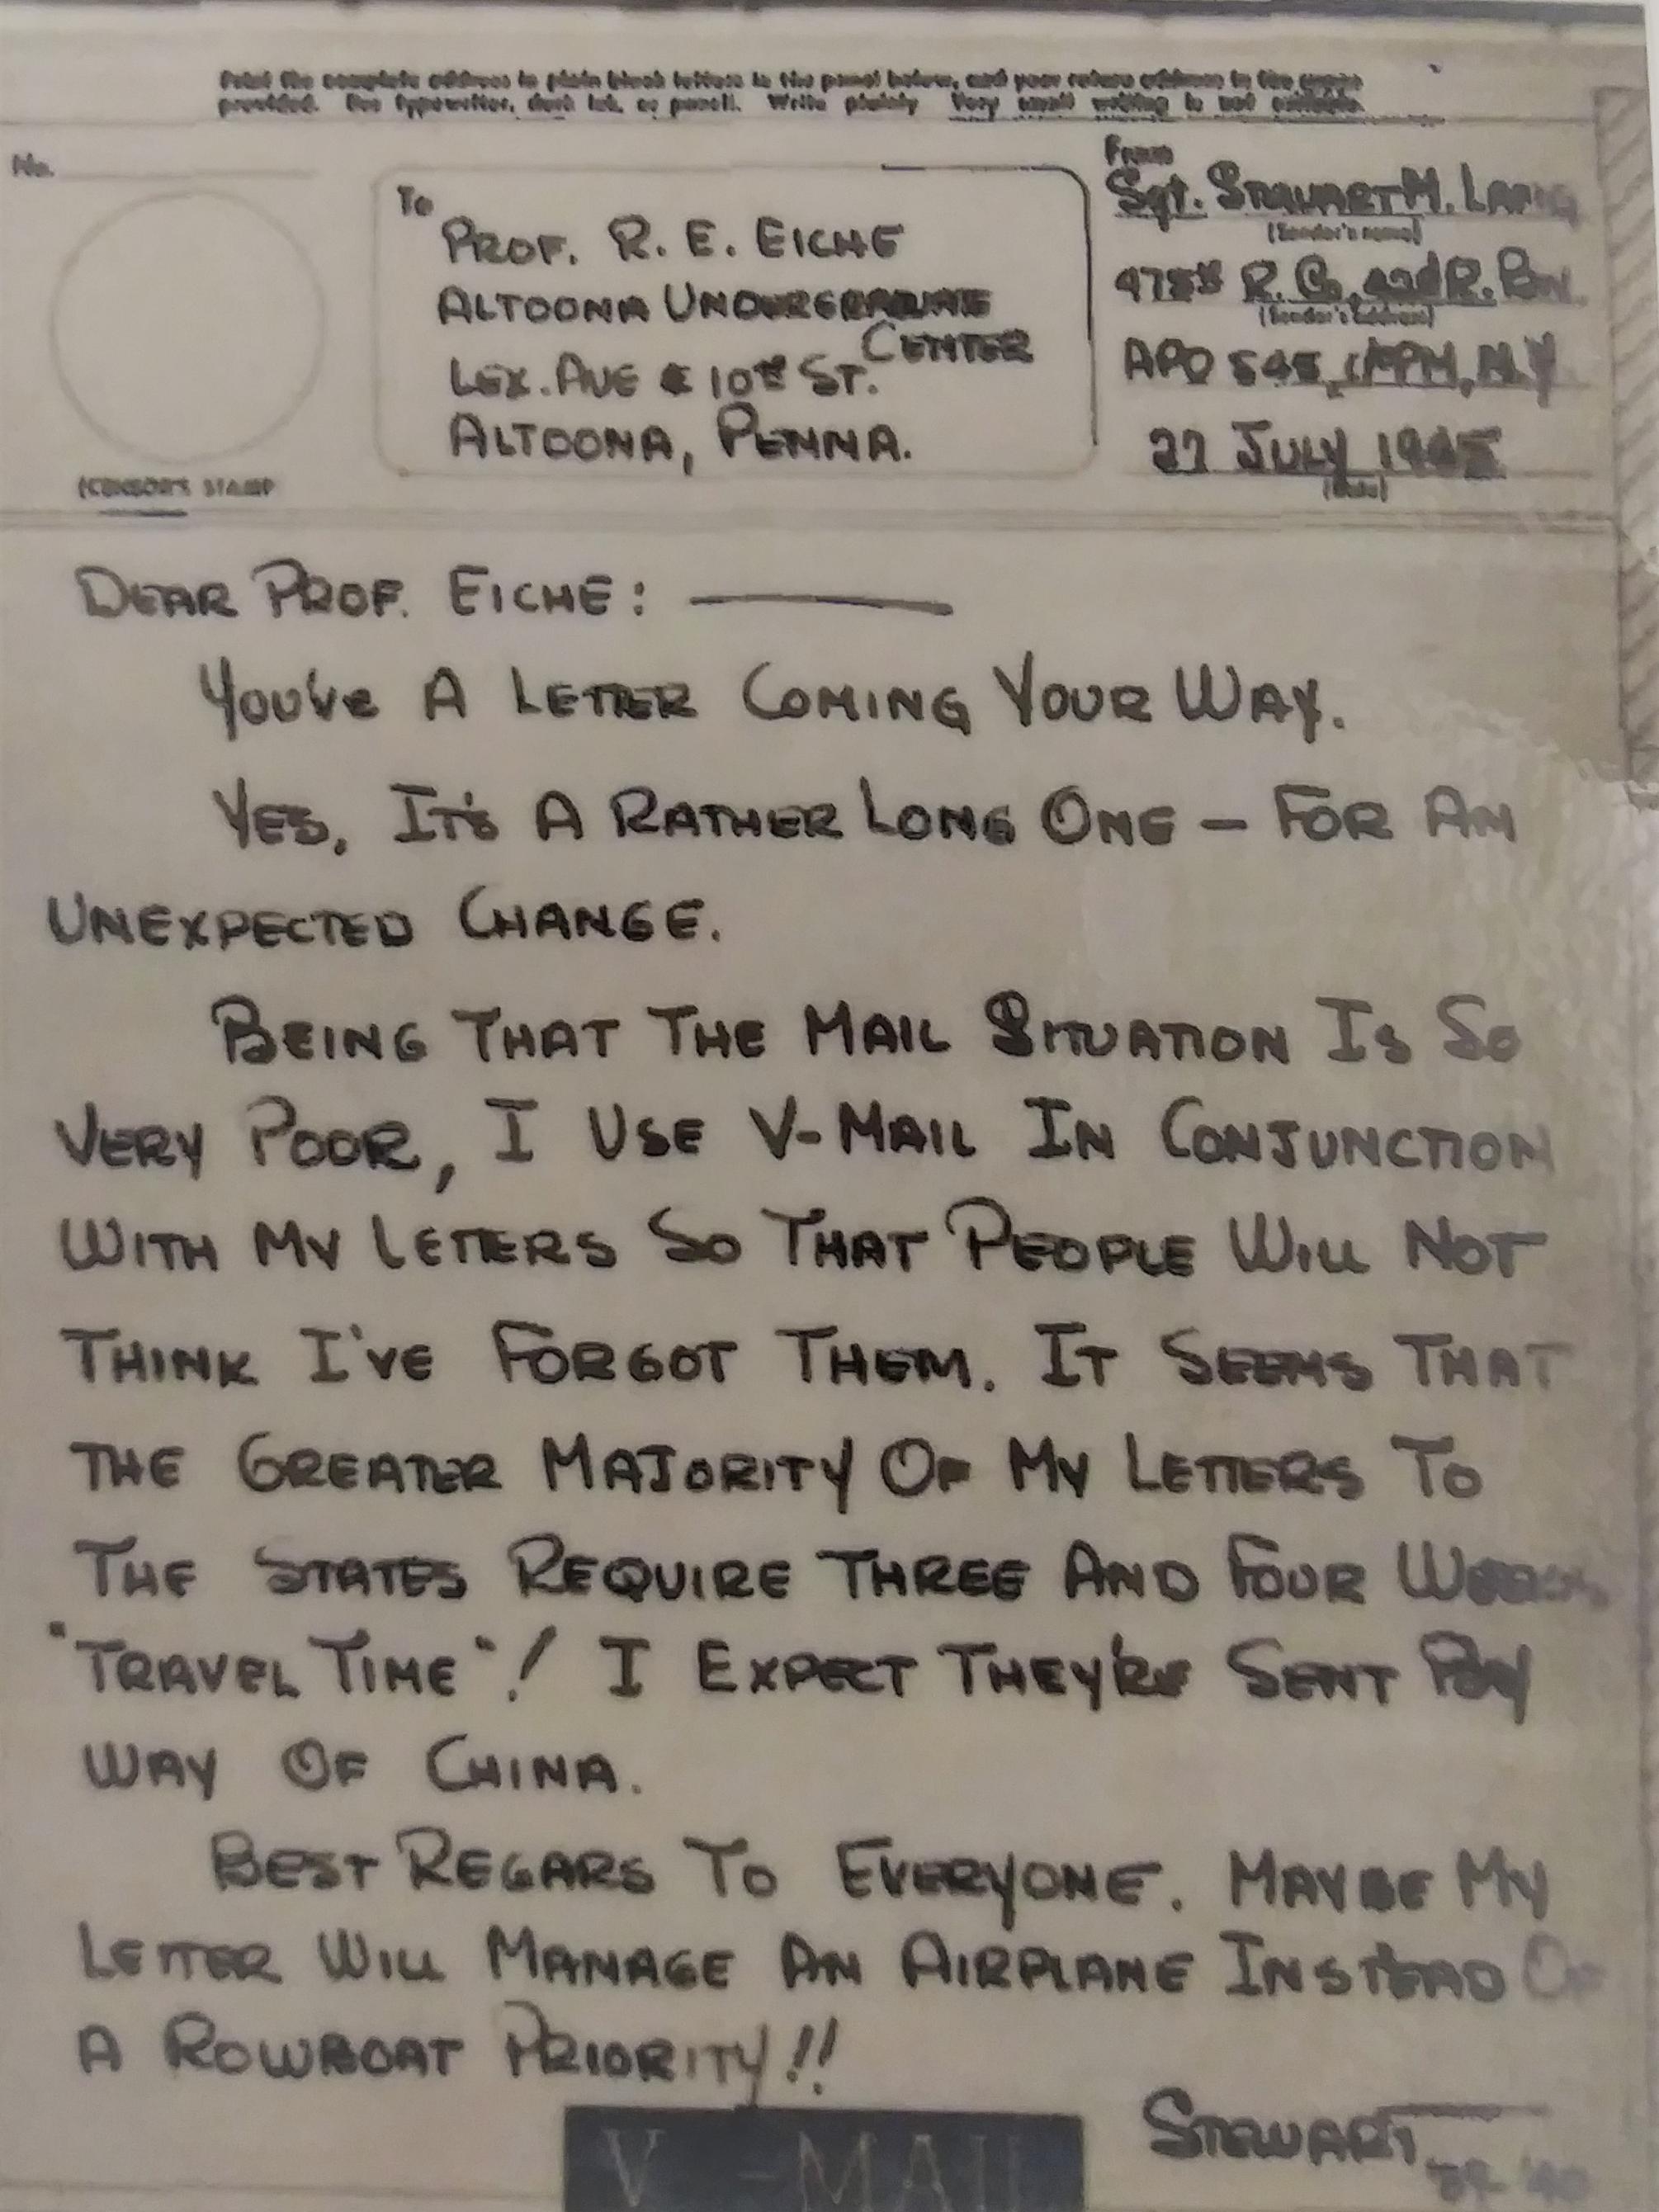 Print the complete address in plain block letters in the panel below, and your return address in the space
provided. Use typewriter, dark ink, or pencil. Write plainly Very small writing is not suitable.
No.
(CENSOR'S STAMP
To
PROF. R. E. EICHE
ALTOONA UNDERGRADUATE
CENTER
LEX. AVE & 10TH ST.
ALTOONA, PENNA.
From
Sgt. STEWART M.
(Sender's name)
R.
(Sender's address)
APO 545, N.Y
27 JULY 1945
(Date)
DEAR PROF. EICHE:
YOU'VE A LETTER COMING YOUR WAY.
YES, IT'S A RATHER LONG ONE – FOR AN
UNEXPECTED CHANGE.
BEING THAT THE MAIL SITUATION IS SO
VERY POOR, I USE V-MAIL IN CONJUNCTION
WITH MY LETTERS SO THAT PEOPLE WILL NOT
THINK I'VE FORGOT THEM. IT SEEMS THAT
THE GREATER MAJORITY OF MY LETTERS TO
THE STATES REQUIRE THREE AND FOUR WEEKS
"TRAVEL TIME"! I EXPECT THEY'RE SENT BY
WAY OF CHINA.
BEST REGARS TO EVERYONE. MAYBE MY
LETTER WILL MANAGE AN AIRPLANE INSTEAD OF
A ROWBOAT PRIORITY!!
STEWART
V - MAIL